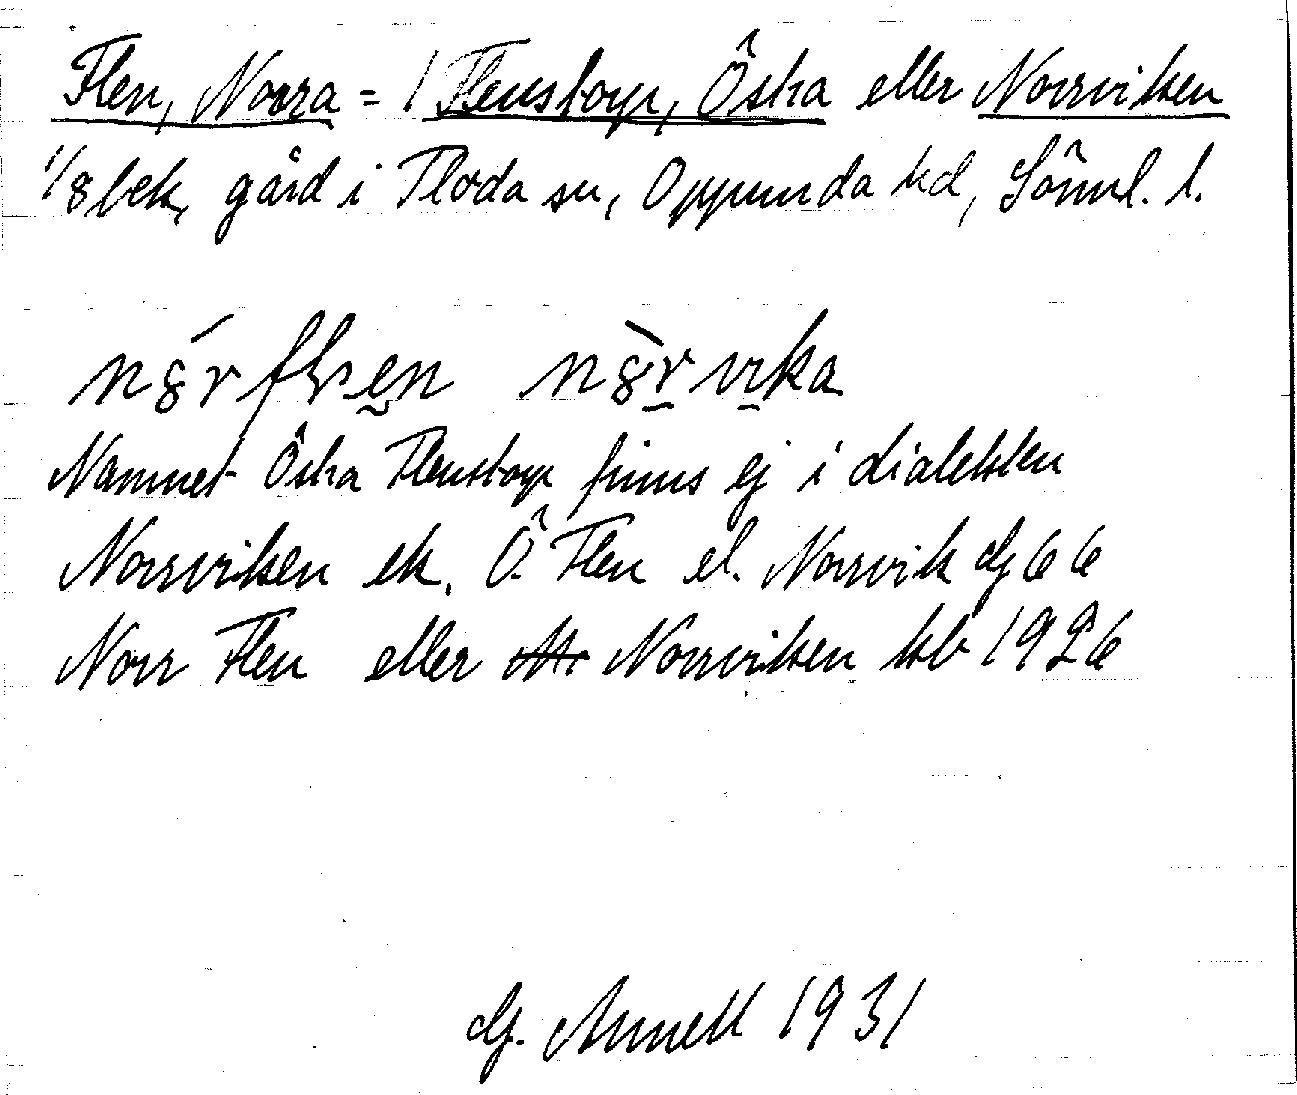 Flen, Norra = 1 Flenstorp, Östra eller Norrviken
1/8 bek, gård i Floda sn, Oppunda hd, Sörml. l.
Namnet Östra Flenstorp finns ej i dialekten
Norrviken ek. Ö. Flen el. Norrvik Gg 66
Norr Flen eller Norrviken kb 1926
G. Annell 1931